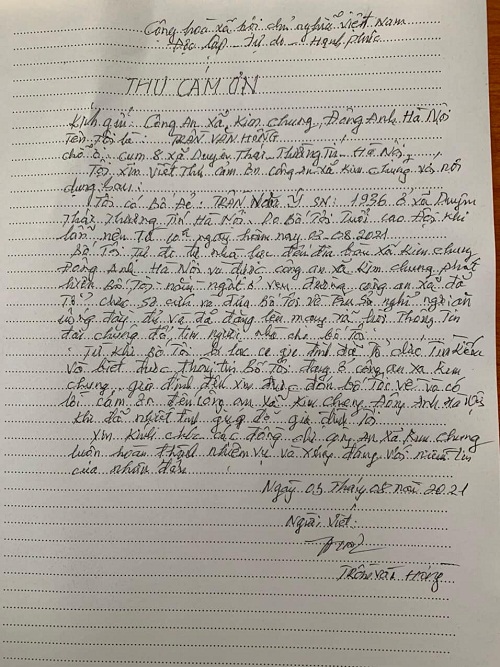 Cộng hòa xã hội chủ nghĩa Việt Nam
Độc lập - Tự do - Hạnh phúc
THƯ CẢM ƠN
Kính gửi: Công An xã Kim Chung, Đông Anh Hà Nội
Tên tôi là: TRẦN VĂN HỒNG
chỗ ở: cụm 8 xã Duyên Thái Thường Tín Hà Nội
Tôi xin viết thư cảm ơn công an xã Kim chung với nội
dung sau:
Tôi có Bố Đẻ: TRẦN Y SN: 1936 ở xã Duyên
Thái Thường Tín Hà Nội. Do Bố Tôi Tuổi cao Đôi khi
lẫn nên Từ 10h ngày hôm nay 03-08-2021
Bố Tôi Tự đi từ nhà lên đến địa bàn xã Kim chung
Đông Anh Hà Nội và được công an xã Kim chung phát
hiện Bố Tôi nằm ngất ở ven đường công an xã đã
Tổ chức sơ cứu và đưa Bố Tôi về trụ sở nghỉ ngơi ăn
uống đầy đủ và đã đăng lên mạng xã hội Thông Tin
đại chúng để tìm người nhà cho bố Tôi
Từ khi Bố Tôi bị lạc gia đình đã Tổ chức Tìm kiếm
và biết được thông tin Bố Tôi đang ở công an xã Kim
chung, gia đình đến xin được đón bố Tôi về và có
lời cảm ơn đến công an xã Kim Chung Đông Anh Hà Nội
khi đã nhiệt tình giúp đỡ gia đình Tôi
Xin kính chúc các đồng chí công an xã Kim chung
luôn hoàn thành nhiệm vụ và xứng đáng với niềm tin
của nhân dân
Ngày 03 Tháng 08 năm 2021
Người viết:
Trần Văn Hồng